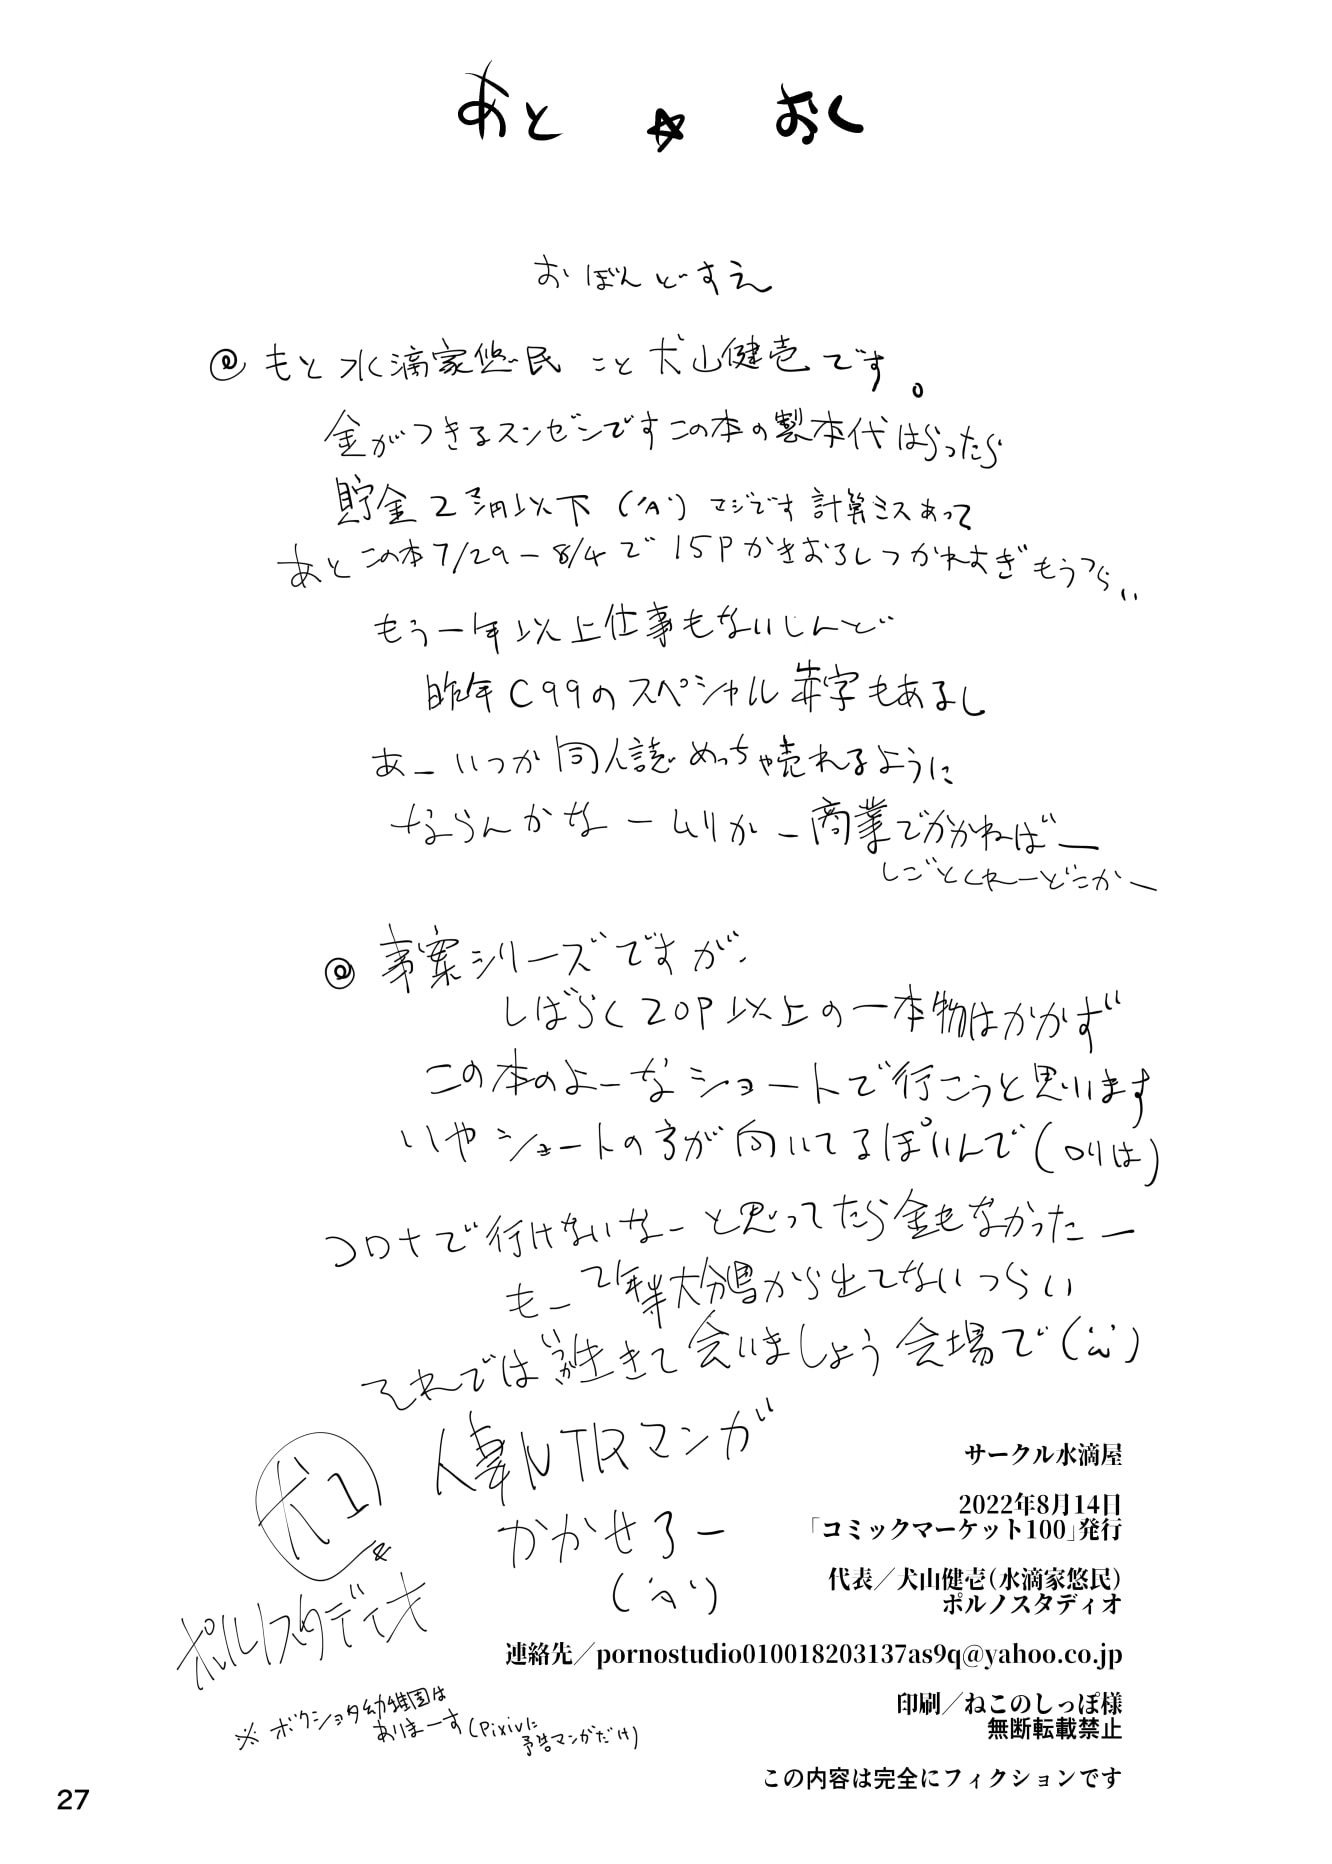 あと ☆ おく
おぼんどすえ
◎ もと 水滴家悠民 こと 犬山健壱です。
金がつきるスンゼンですこの本の製本代はらったら
貯金2万円以下 ('A`) マジです 計算ミスあって
あとこの本7/29-8/4で15Pかきおろしつかれすぎもうつらい
もう一年以上仕事もないしんど
昨年C99のスペシャル赤字もあるし
あーいつか同人誌めっちゃ売れるように
ならんかなームリかー商業でかかねばー
しごとくれーどこかー
◎ 事案シリーズですが、
しばらく20P以上の一本物はかかず
この本のよーなショートで行こうと思います
いやショートの方が向いてるぽいんで(ロリは)
コロナで行けないなーと思ってたら金もなかったー
もー2年半大分県から出てないつらい
それではいつか生きて会いましょう会場で
人妻NTRマンガ
かかせろー
犬1
ポルノスタディオ
※ ボクショタ幼稚園は
ありまーす(Pixivに
予告マンガだけ)
サークル水滴屋
2022年8月14日
「コミックマーケット100」発行
代表／犬山健壱(水滴家悠民)
ポルノスタディオ
連絡先／pornostudio010018203137as9q@yahoo.co.jp
印刷／ねこのしっぽ様
無断転載禁止
この内容は完全にフィクションです
27